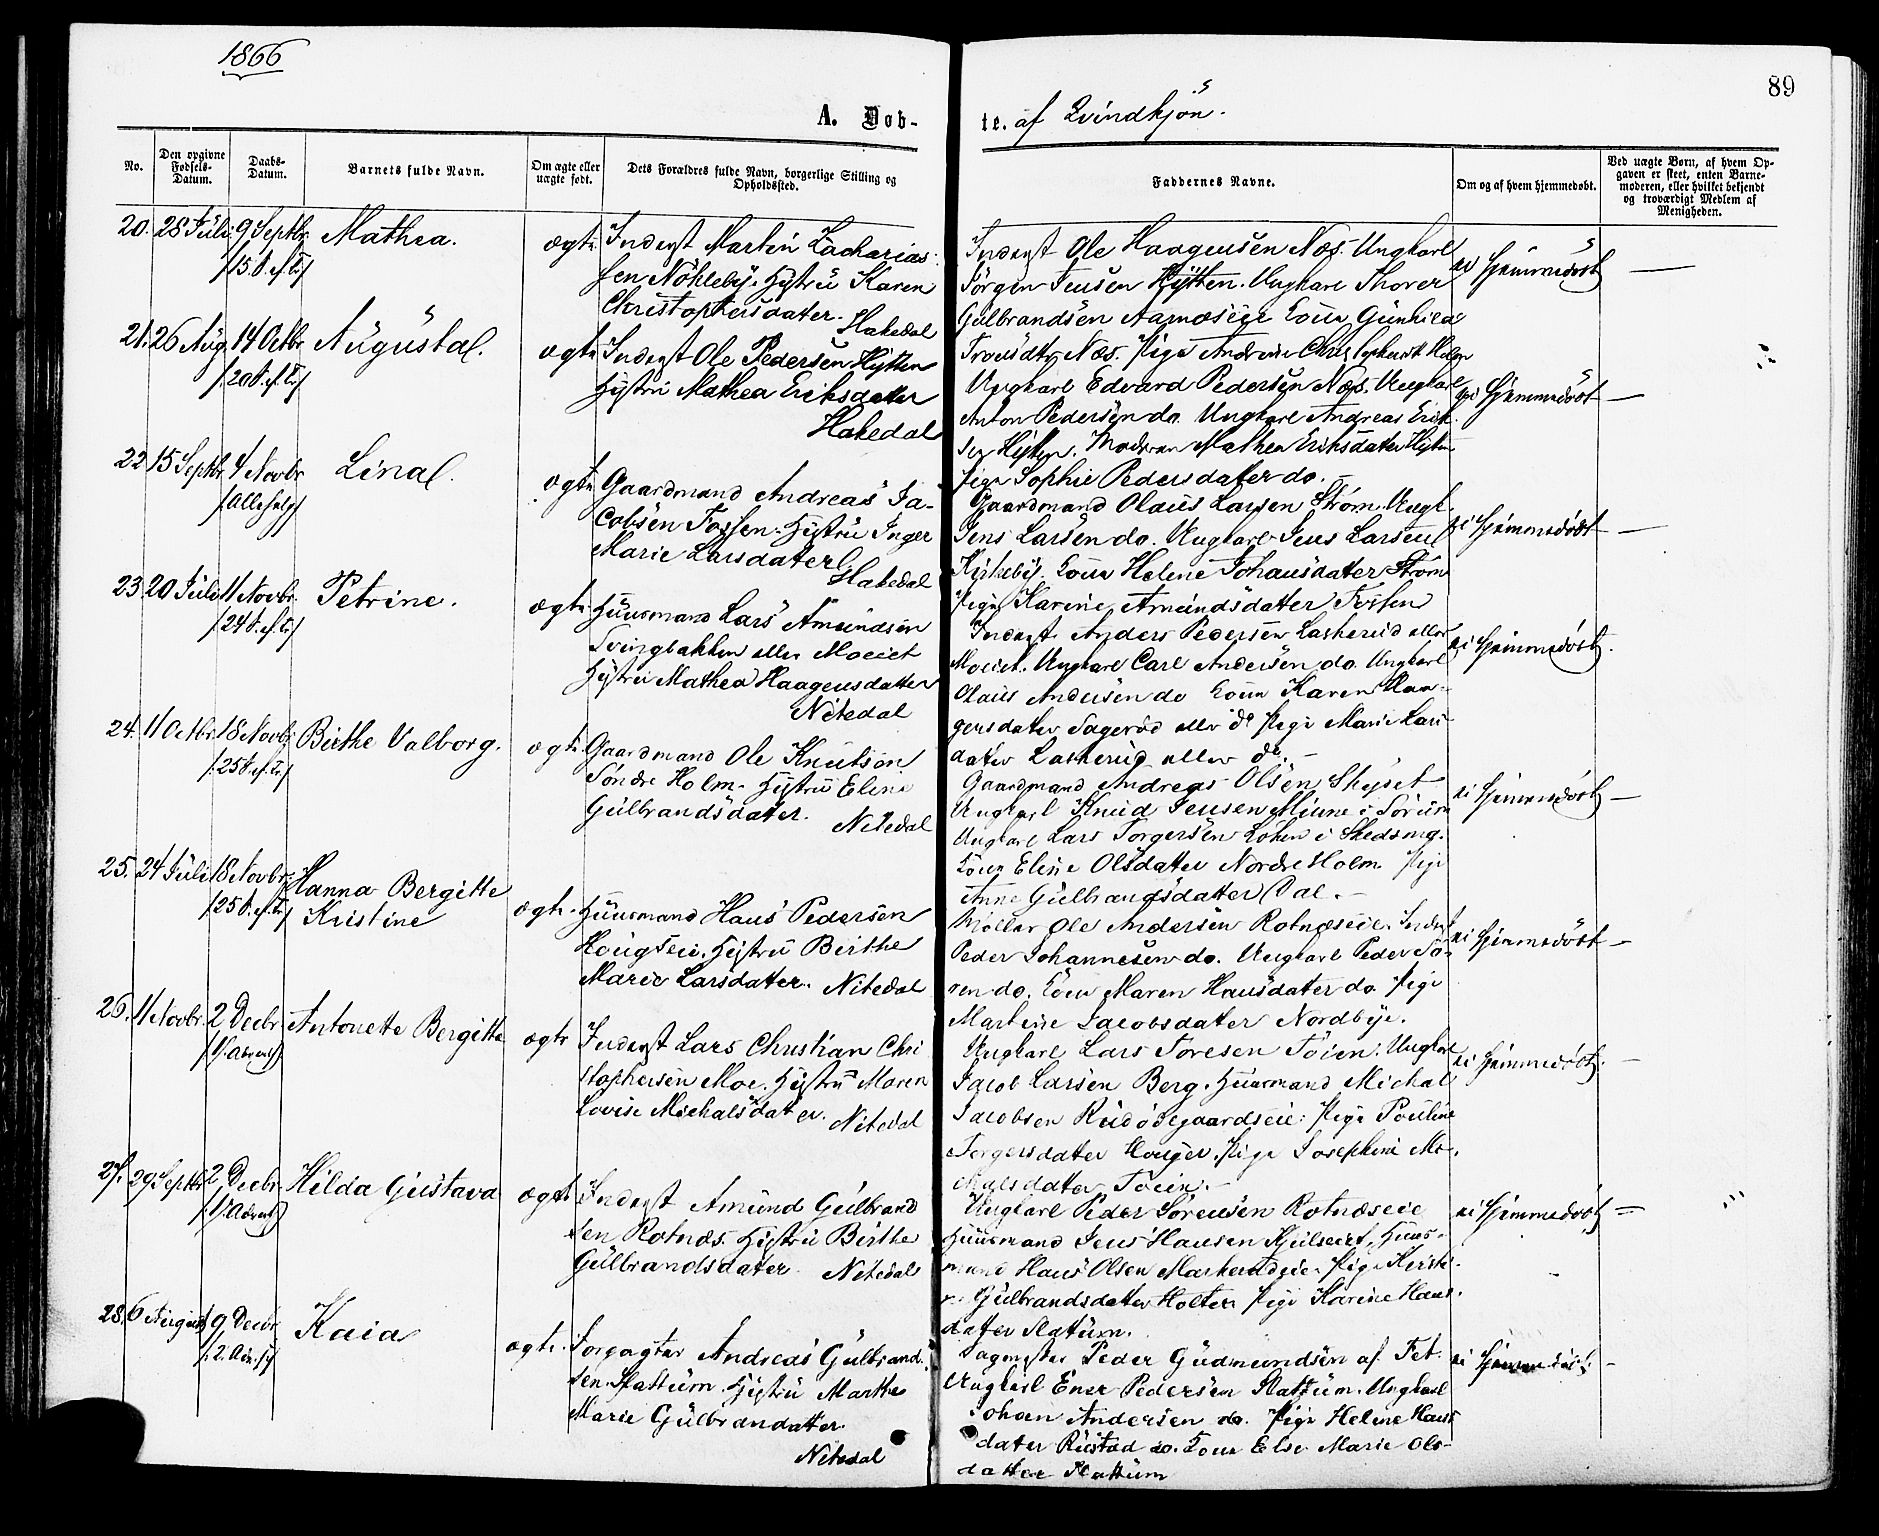 1866
89
A. Døb-
te. af Qvindkjön.
No.
Den opgivne Fødsels-Datum.
Daabs-Datum.
Barnets fulde Navn.
Om ægte eller uægte født.
Dets Forældres fulde Navn, borgerlige Stilling og Opholdssted.
Faddernes Navne.
Om og af hvem hjemmedøbt.
Ved uægte Børn, af hvem Opgaven er skeet, enten Barnemoderen, eller hvilket bekjendt og troværdigt Medlem af Menigheden.
20. 28 Juli 9 Septbr. Mathea. ægte
15 S. ef. Tr.
Inderst Martin Zacharias-
sen Nökleby. Hystru Karen
Christophersdatter.
Hakedal
Inderst Ole Haagensen Næs. Ungkarl
Jörgen Jensen Hytten. Ungkarl Thorer
Gulbrandsen Aamoseie Kone Gunhild
ei hjemmedöbt —
21. 26 Aug. 14 Octbr. Augusta. ægte
20 S. ef. Tr.
Inderst Ole Pedersen Hytten
Hystru Mathea Eriksdatter
Hakedal
Næs. Pige
Ungkarl Edvard Pedersen Næs. Ungkarl
Anton Pedersen do. Ungkarl Andreas Erik-
sen Hytten. Moderen Mathea Eriksdatter Hytten
Pige Sophie Pedersdatter do. —
ei hjemmedöbt —
22 15 Septbr. 4 Novbr. Lina. ægte
Allehelg
Gaardmand Andreas Ja-
cobsen Fossen. Hystru Inger
Marie Larsdatter.
Hakedal
Gaardmand Olaus Larsen Ström. Ungk.
Jens Larsen do. Ungkarl Jens Larsen
Kirkeby. Kone Helene Johansdatter Ström
Pige Karine Amundsdatter Fossen
ei hjemmedöbt —
23. 20 Juli 11 Novbr. Petrine. ægte
24 S. ef. Tr.
Huusmand Lars Amundsen
Svingbakken eller Moeiet
Hystru Mathea Haagensdatter
Nitedal
Inderst Anders Pedersen Laskerud eller
Moeiet. Ungkarl Carl Andersen do. Ungkarl
Olaus Andersen do Kone Karen Haa-
gensdatter Sagerud eller do Pige Marie Lars-
datter Laskerud eller do. —
ei hjemmedöbt.
24. 11 Octbr. 18 Novbr. Birthe Valborg. ægte
25 S. ef. Tr.
Gaardmand Ole Knutson
Söndre Holm. Hystru Eline
Gulbrandsdatter.
Nitedal
Gaardmand Andreas Olsen Skyset
Ungkarl Knud Jensen Minne i Sörum
Ungkarl Lars Torgersen Löken i Skedsmo.
Kone Eline Olsdatter Nordre Holm. Pige
Anne Gulbrandsdatter Dal. —
ei hjemmedöbt —
25. 24 Juli 18 Novbr. Hanna Bergitte
Kristine ægte.
25 S. ef. Tr.
Huusmand Hans Pedersen
Hougseie. Hystru Birthe
Marie Larsdatter. Nitedal
Möller Ole Andersen Rotnæseie. Inderst
Peder Johannesen do. Ungkarl Peder Sö-
ren do. Kone Maren Hansdatter do. Pige
Martine Jacobsdatter Nordbye.
ei hjemmedöbt —
26. 11 Novbr. 2 Decbr. Antonette Bergitte ægte
1 Advent
Inderst Lars Christian Chri
stophersen Moe. Hystru Maren
Lovise Michalsdatter.
Nitedal
Ungkarl Lars Toresen Töien. Ungkarl
Jacob Larsen Berg. Huusmand Michal
Jacobsen Rudödegaardseie. Pige Pouline
Torgersdatter Houger. Pige Josephine Mi-
chalsdatter Töien. —
ei hjemmedöbt. —
27. 29 Septbr. 2 Decbr. Hilda Gustava ægte
1 Advent
Inderst Amund Gulbrand
sen Rotnæs. Hystru Birthe
Gulbrandsdatter. Nitedal
Ungkarl Peder Sörensen Rotnæseie
Huusmand Jens Hansen Kjulseiet, Huus-
mand Hans Olsen Markerudeie. Pige Kirsti-
ne Gulbrandsdatter Holter. Pige Karine Hans-
datter Slattum.
ei hjemmedöbt —
28. 6 August 9 Decbr. Kaia ægte.
2. Adv.
Forpagter Andreas Gulbrand-
sen Slattum. Hystru Marthe
Marie Gulbrandatter.
Nitedal
Peder Gudmundsen af Fet.
Ungkarl Ener Pedersen Slattum. Ungkarl
Johan Andersen do. Pige Helene Hans
datter Rustad do. Kone Else Marie Ols-
datter Slattum
ei hjemmedöbt —